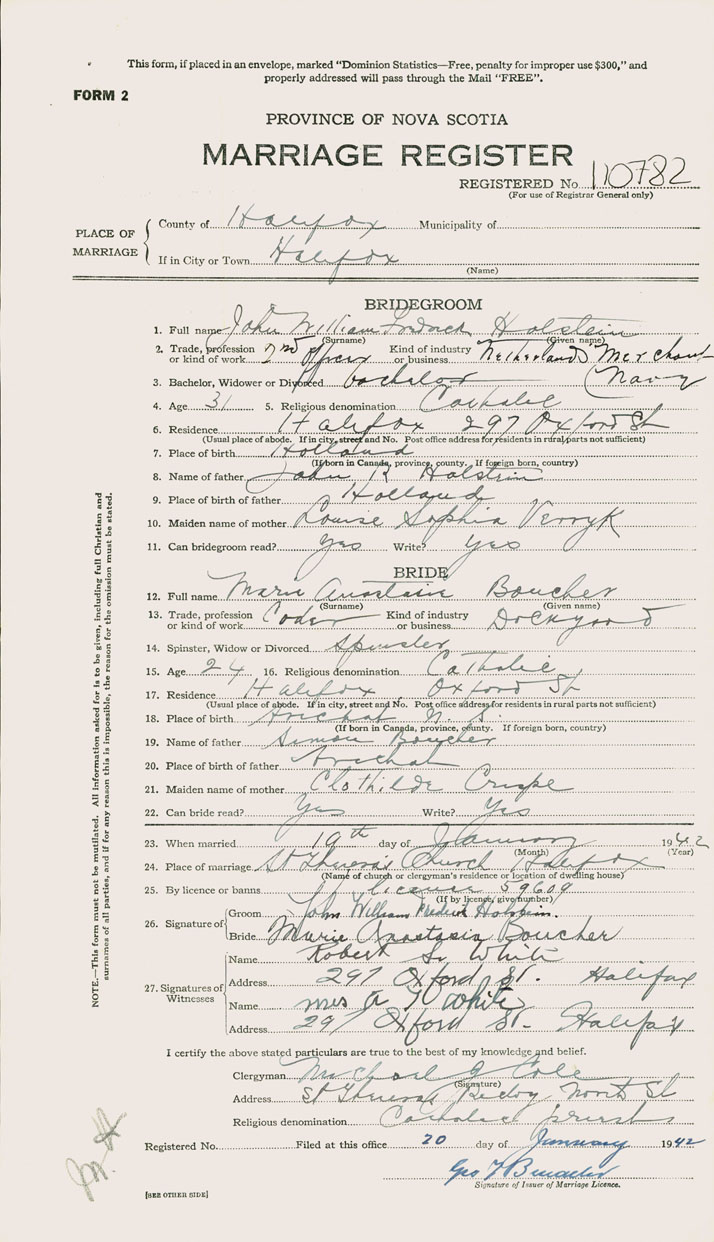 This form, if placed in an envelope, marked "Dominion Statistics—Free, penalty for improper use $300," and
properly addressed will pass through the Mail "FREE".
FORM 2
PROVINCE OF NOVA SCOTIA
MARRIAGE REGISTER
REGISTERED No. 110782
(For use of Registrar General only)
PLACE OF MARRIAGE
County of Halifax Municipality of
If in City or Town Halifax
(Name)
BRIDEGROOM
1. Full name John William Holstein
(Surname) (Given name)
2. Trade, profession or kind of work 2nd Officer Kind of industry or business Netherlands Merchant (Navy
3. Bachelor, Widower or Divorced bachelor
4. Age 31 5. Religious denomination Catholic
6. Residence Halifax 297 Oxford St
(Usual place of abode. If in city, street and No. Post office address for residents in rural parts not sufficient)
7. Place of birth Holland
(If born in Canada, province, county. If foreign born, country)
8. Name of father John R Holstein
9. Place of birth of father Holland
10. Maiden name of mother Louise Sophia Verryk
11. Can bridegroom read? Yes Write? Yes
BRIDE
12. Full name Marie Anastasia Boucher
(Surname) (Given name)
13. Trade, profession or kind of work Coder Kind of industry or business Dockyard
14. Spinster, Widow or Divorced Spinster
15. Age 24 16. Religious denomination Catholic
17. Residence Halifax Oxford St
(Usual place of abode. If in city, street and No. Post office address for residents in rural parts not sufficient)
18. Place of birth Arichat N. S.
(If born in Canada, province, county. If foreign born, country)
19. Name of father Simon Boucher
20. Place of birth of father Arichat
21. Maiden name of mother Clothilde Crispe
22. Can bride read? Yes Write? Yes
23. When married 19th day of January 1942
(Month) (Year)
24. Place of marriage St Theresa's Church Halifax
(Name of church or clergyman's residence or location of dwelling house)
25. By licence or banns license 59609
(If by licence, give number)
26. Signature of
Groom John William Frederik Holstein.
Bride Marie Anastasia Boucher
27. Signatures of Witnesses
Name Robert S. White
Address 297 Oxford St. Halifax
Name Mrs White
Address 297 Oxford St. Halifax
I certify the above stated particulars are true to the best of my knowledge and belief.
Clergyman Michael J Cole
(Signature)
Address St Theresa's North St
Religious denomination Catholic priest
Registered No. Filed at this office 20 day of January 1942
Geo
Signature of Issuer of Marriage Licence.
[SEE OTHER SIDE]
NOTE.—This form must not be mutilated. All information asked for is to be given, including full Christian and
surnames of all parties, and if for any reason this is impossible, the reason for the omission must be stated.